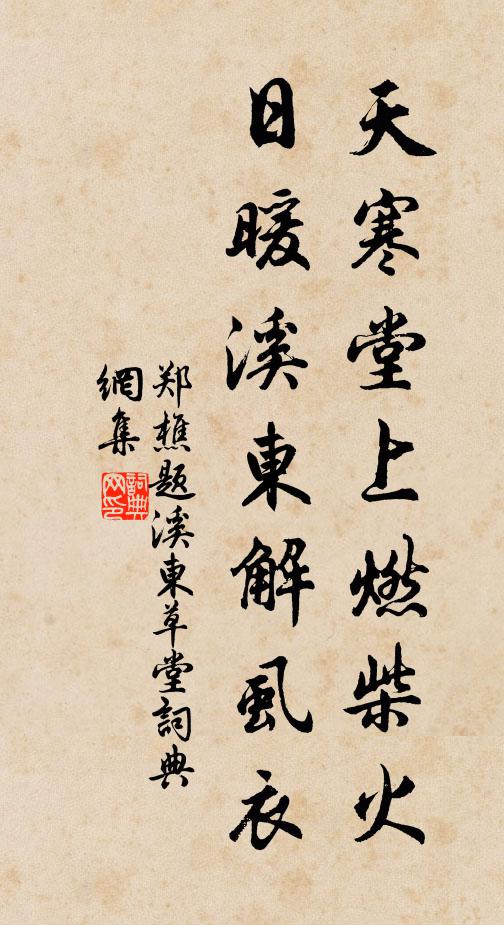 天寒堂上燃柴火
日暖溪東解虱衣
郑樵题溪東草堂詞典
網集
詞典
网印